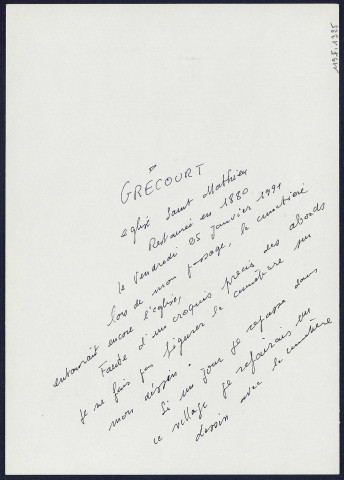 1195.1325
GRÉCOURT
eglise Saint Mathieu
Restaurée en 1880
le vendredi 25 janvier 1991
lors de mon passage, le cimetière
entourait encore l'église,
Faute d'un croquis precis des abords
je ne fais pas figurer le cimetière sur
mon dessin.
Si un jour je repasse dans
ce village je referais un
dessin avec le cimetière